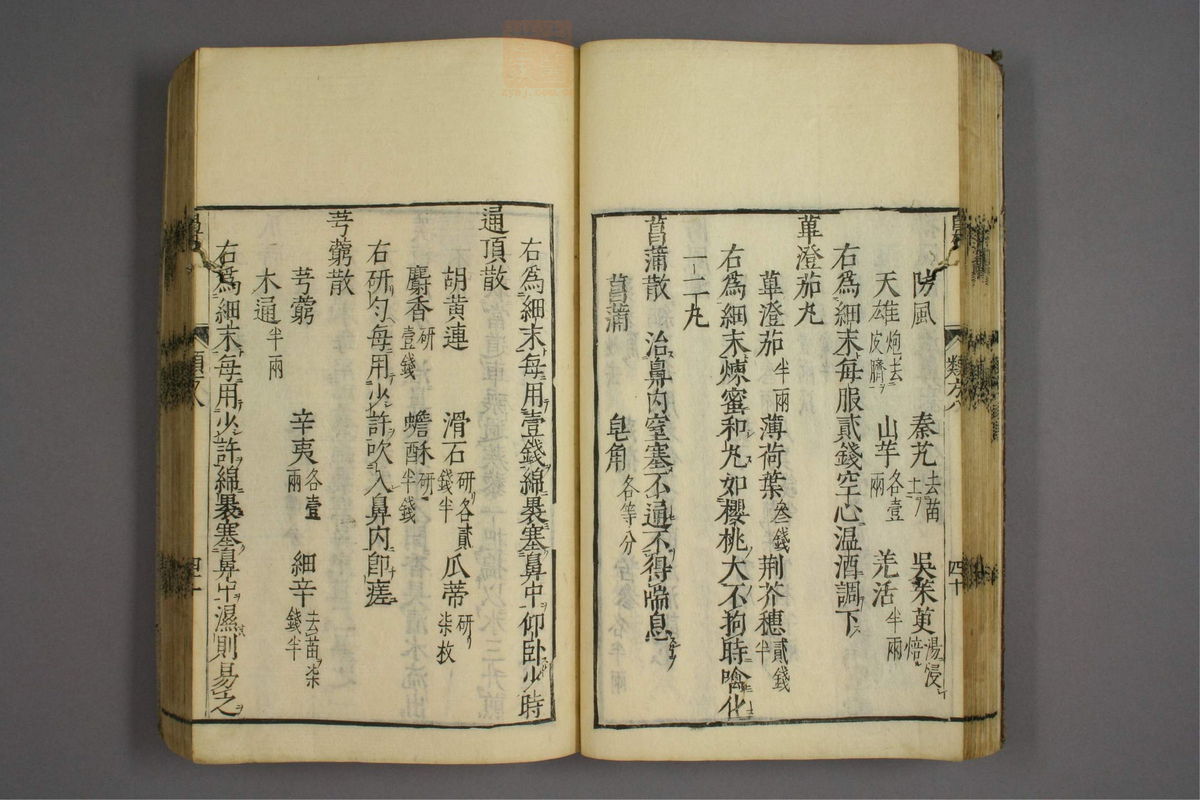 防風 秦艽去苗土 吳茱萸湯浸焙
天雄炮去皮臍 山芋各壹兩 羌活半兩
右為細末每服貳錢空心温酒調下
蓽澄茄丸
蓽澄茄半兩 薄荷葉叁錢 荆芥穗貳錢半
右為細末煉蜜和丸如櫻桃大不拘時噙化
一二丸
菖蒲散 治鼻内窒塞不通不得喘息
菖蒲 皂角各等分
右為細末每用壹錢綿裹塞鼻中仰卧少時
通頂散
胡黄連 滑石研各貳錢半 瓜蒂研柒枚
麝香研壹錢 蟾酥研半錢
右研匀每用少許吹入鼻内即瘥
芎藭散
芎藭 辛夷各壹兩 細辛去苗柒錢半
木通半兩
右為細末每用少許綿裹塞鼻中濕則易之
類方八
四十